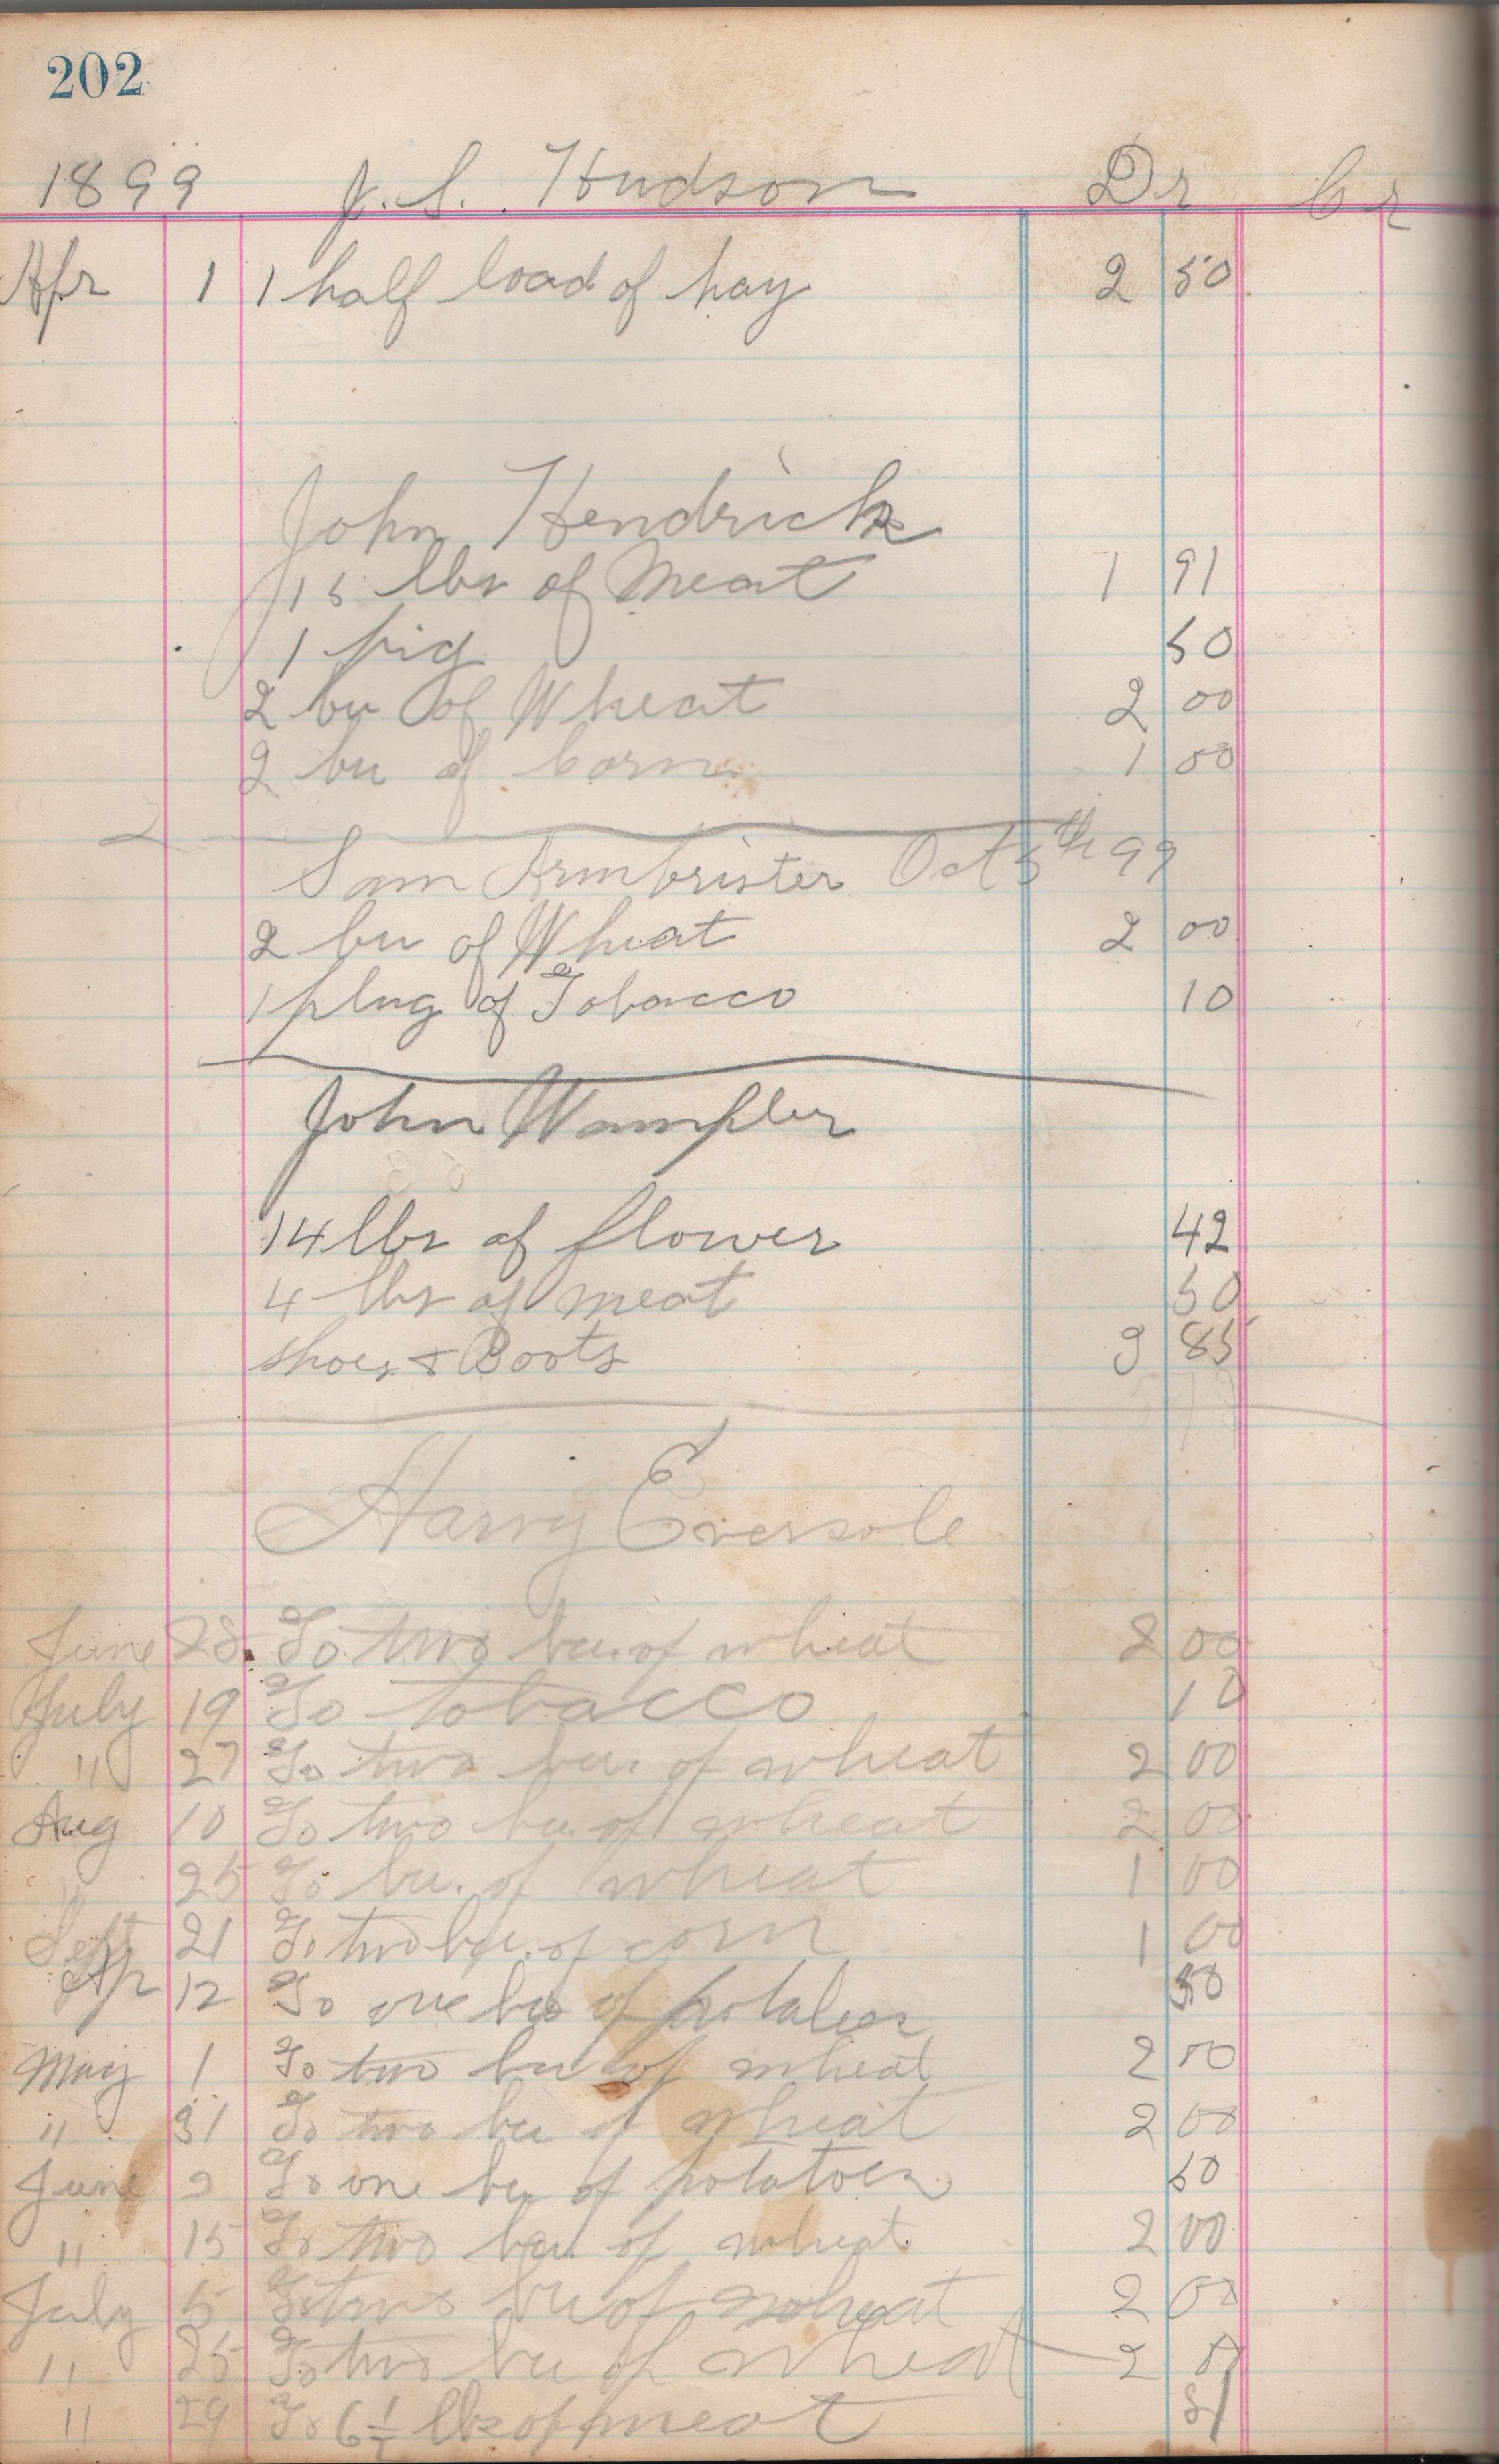 202
1899 J. S. Hudson Dr Cr
Apr 1 1 half load of hay 2 50
John Hendrick
15 lbs of Meat 1 91
1 pig 50
2 bu of Wheat 2 00
2 bu of Corn 1 00
Sam Armbrister Oct 5th 99
2 bu of Wheat 2 00
1 plug of Tobacco 10
John Wampler
14 lbs of flower 42
4 lbs of meat 50
shoes & Boots 3 85
Harvy Eversole
June 28 To two bu. of wheat 2 00
July 19 To tobacco 10
" 27 To two bu. of wheat 2 00
Aug 10 To two bu. of wheat 2 00
" 25 To bu. of wheat 1 00
Sept 21 To two bu. of corn 1 00
Apr 12 To one bu of potatoes 50
May 1 To two bu of wheat 2 00
" 31 To two bu of wheat 2 00
June 9 To one bu of potatoes 60
" 15 To two bu. of wheat 2 00
July 5 To two bu of wheat 2 00
" 25 To two bu of wheat 2 0
" 29 To 6 1/2 lbs of meat 81